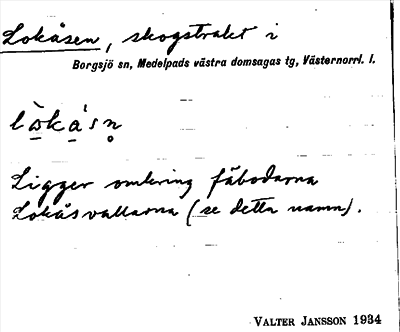 Lokåsen, skogstrakt i
Borgsjö sn, Medelpads västra domsagas tg, Västernorrl. l.
lò̠ka̠ˊsn̥
Ligger omkring fäbodarna
Lokåsvallarna (se detta namn).
VALTER JANSSON 1934